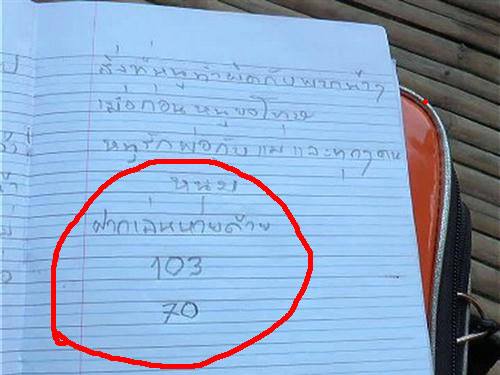 สิ่งที่หนูทำผิดกับพวกน้าๆ
เมื่อก่อน หนูขอโทษ
หนูรักพ่อกับแม่ และทุกๆคน
หนุ่ม
ฝากเล่นหวยด้วย
103
70